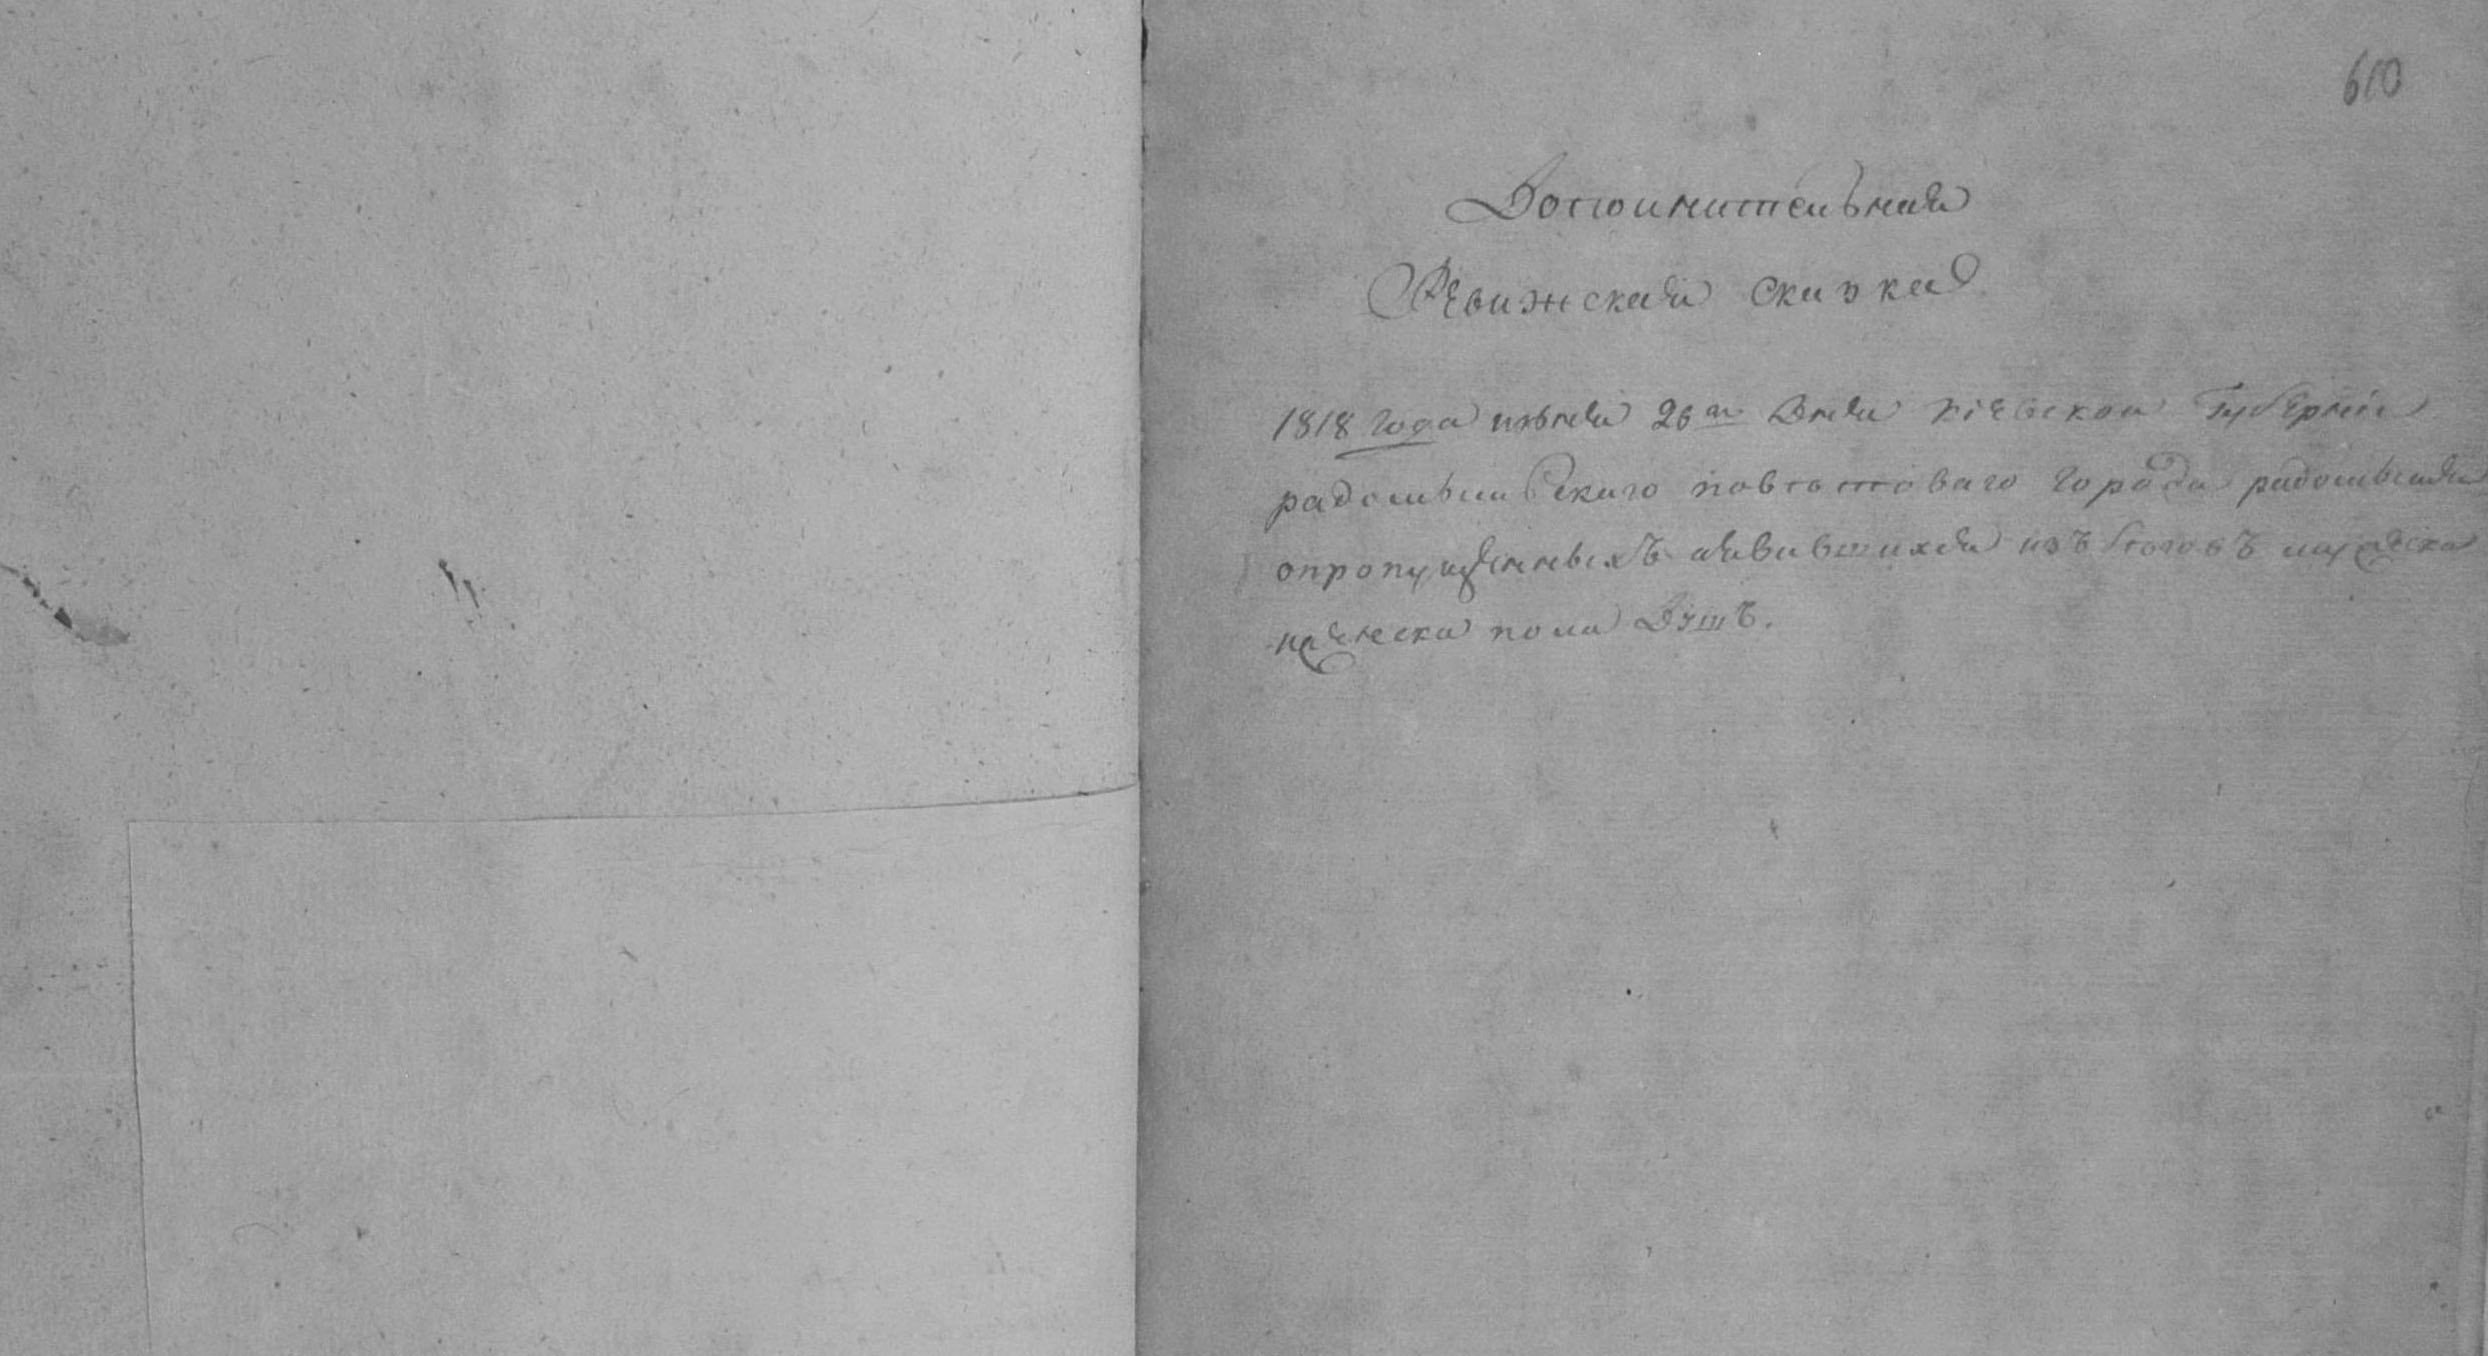 610
Дополнительная
Ревижская скаска
1818 года июня 26го дня киевской Губернии
радомысльскаго поветоваго города радомысля
опропущенныхъ явившихся изъ беговъ мужеска
иженска пола душъ.